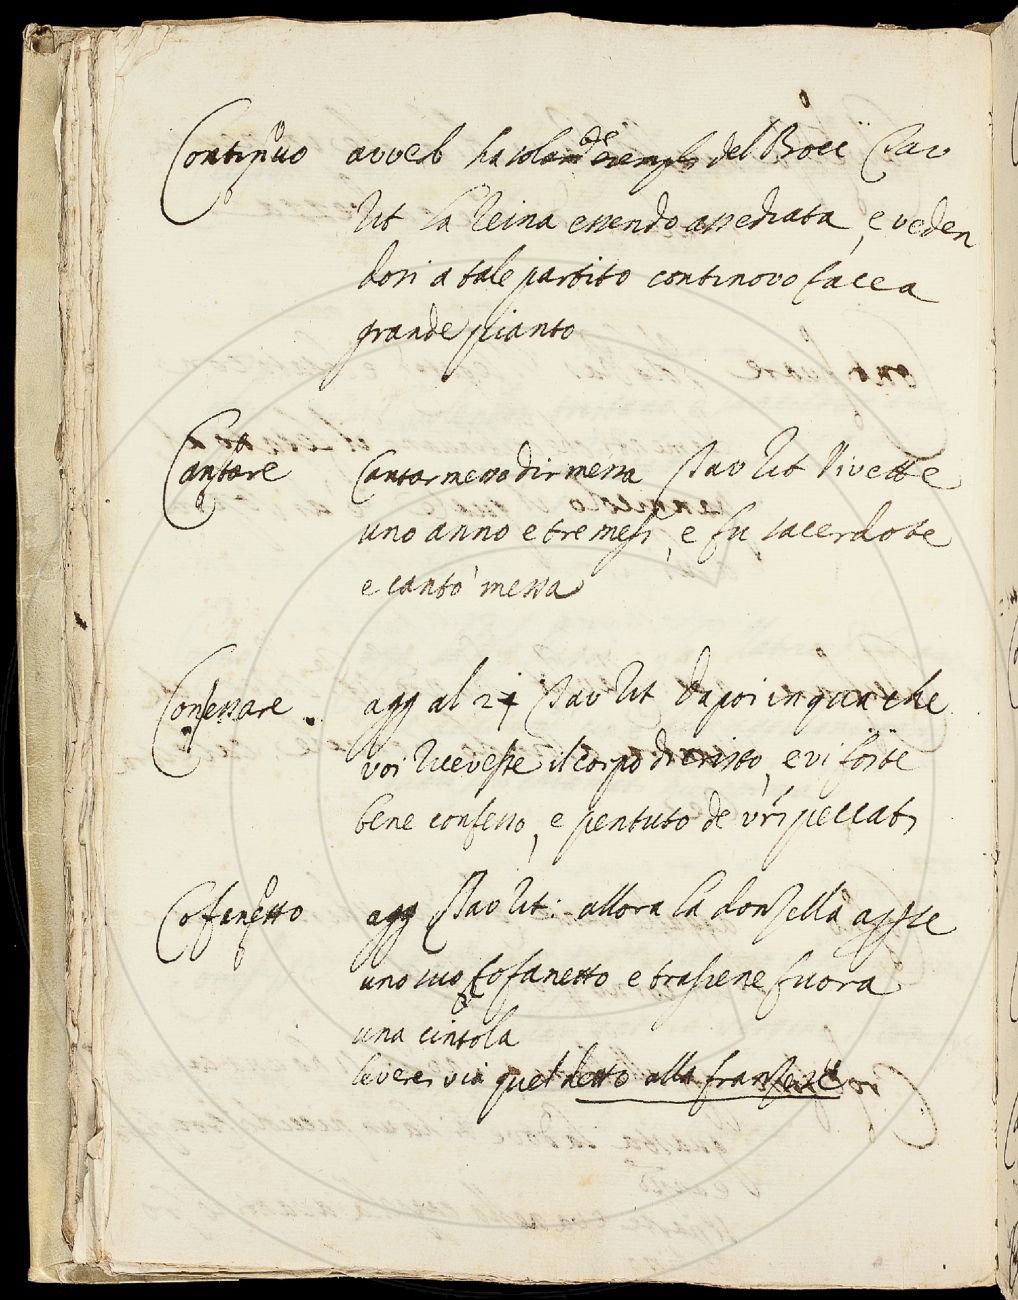 Continuo avverb ha solam de esempli del Bocc Tav
Rit la Reina essendo assediata, e veden
dosi a tale partito continovo facea
grande pianto
Cantare Cantar messa dir messa Tav Rit Vivette
uno anno e tre mesi, e fu sacerdote
e cantò messa
Confessare agg al 2 Tav Rit Dapoi in qua che
voi riceveste il corpo di cristo, e vi foste
bene confesso, e pentuto de vri peccati
Cofanetto agg Tav Rit: allora la donzella aperse
uno suo cofanetto e trassene fuora
una cintola
leverei via quel detto alla franzese